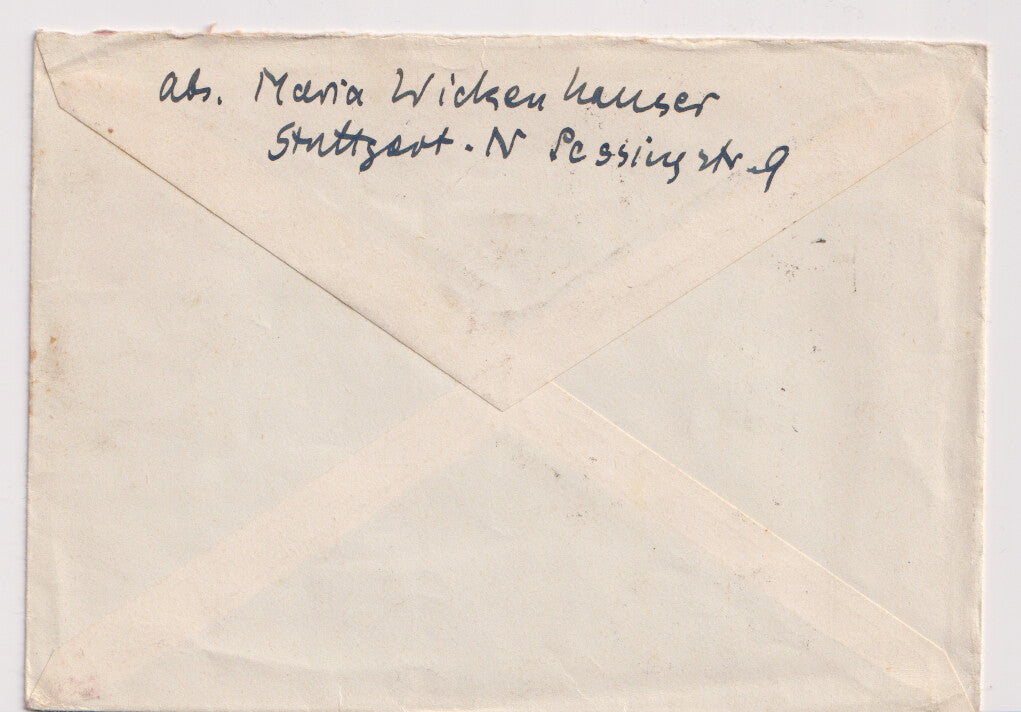 Abs. Maria Wickenhauser
Stuttgart-N Lessingstr. 9